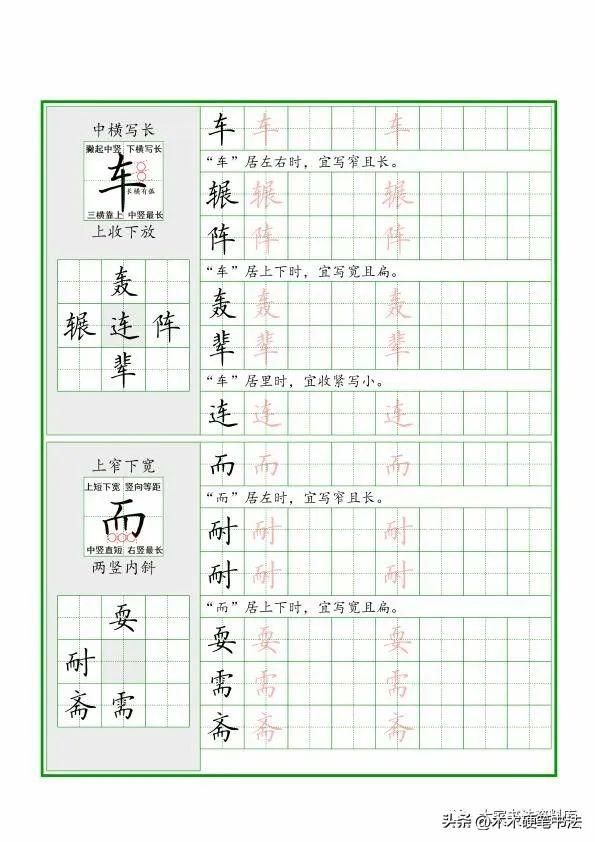 中横写长
撇起中竖 下横写长
车
长横有弧
三横靠上 中竖最长
上收下放
轰
辗 连 阵
辈
车 车 车
“车”居左右时，宜写窄且长。
辗 辗 辗
阵 阵 阵
“车”居上下时，宜写宽且扁。
轰 轰 轰
辈 辈 辈
“车”居里时，宜收紧写小。
连 连 连
上窄下宽
上短下宽 竖向等距
而
中竖直短 右竖最长
两竖内斜
耍
耐
斋 需
而 而 而
“而”居左时，宜写窄且长。
耐 耐 耐
耐 耐 耐
“而”居上下时，宜写宽且扁。
耍 耍 耍
需 需 需
斋 斋 斋
头条 @木木硬笔书法